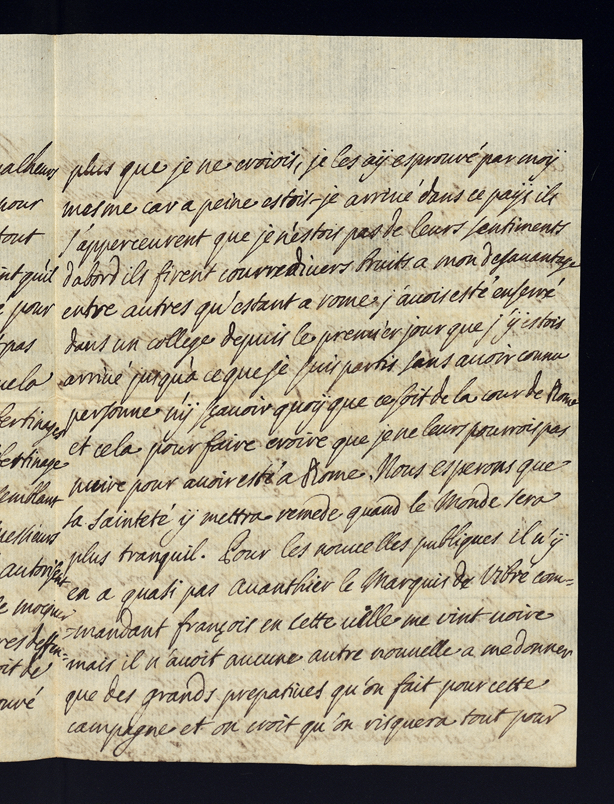 plus que je ne croiois, je les aÿ esprouvé par moÿ
mesme car a peine estois-je arrivé dans ce païs ils
s'apperceurent que je n'estois pas de leurs sentiments
d'abord ils firent courre divers bruits a mon desavantage
entre autres qu'estant a rome j'avois esté enserré
dans un college depuis le premier jour que j'ÿ estois
arrivé jusqu'a ce que je suis partis sans avoir connu
personne nÿ sçavoir quoÿ que ce soit de la cour de Rome
et cela pour faire croire que je ne leurs pourrois pas
nuire pour avoir esté a Rome. Nous esperons que
sa Sainteté ÿ mettra remede quand le Monde sera
plus tranquil. Pour les nouvelles publiques il n'ÿ
en a quasi pas avanthier le Marquis de Vibre com=
=mandant françois en cette ville me vint voire
mais il n'avoit aucune autre nouvelle a me donner
que des grands prepatives qu'on fait pour cette
campagne et on croit qu'on risquera tout pour